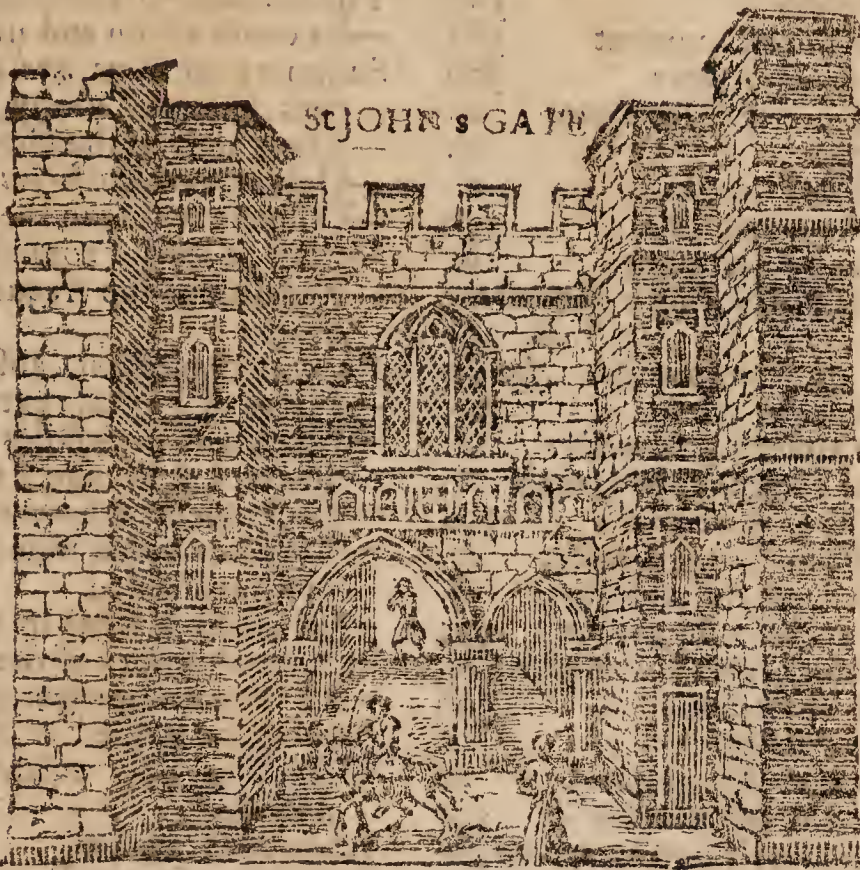 St JOHN s GATE